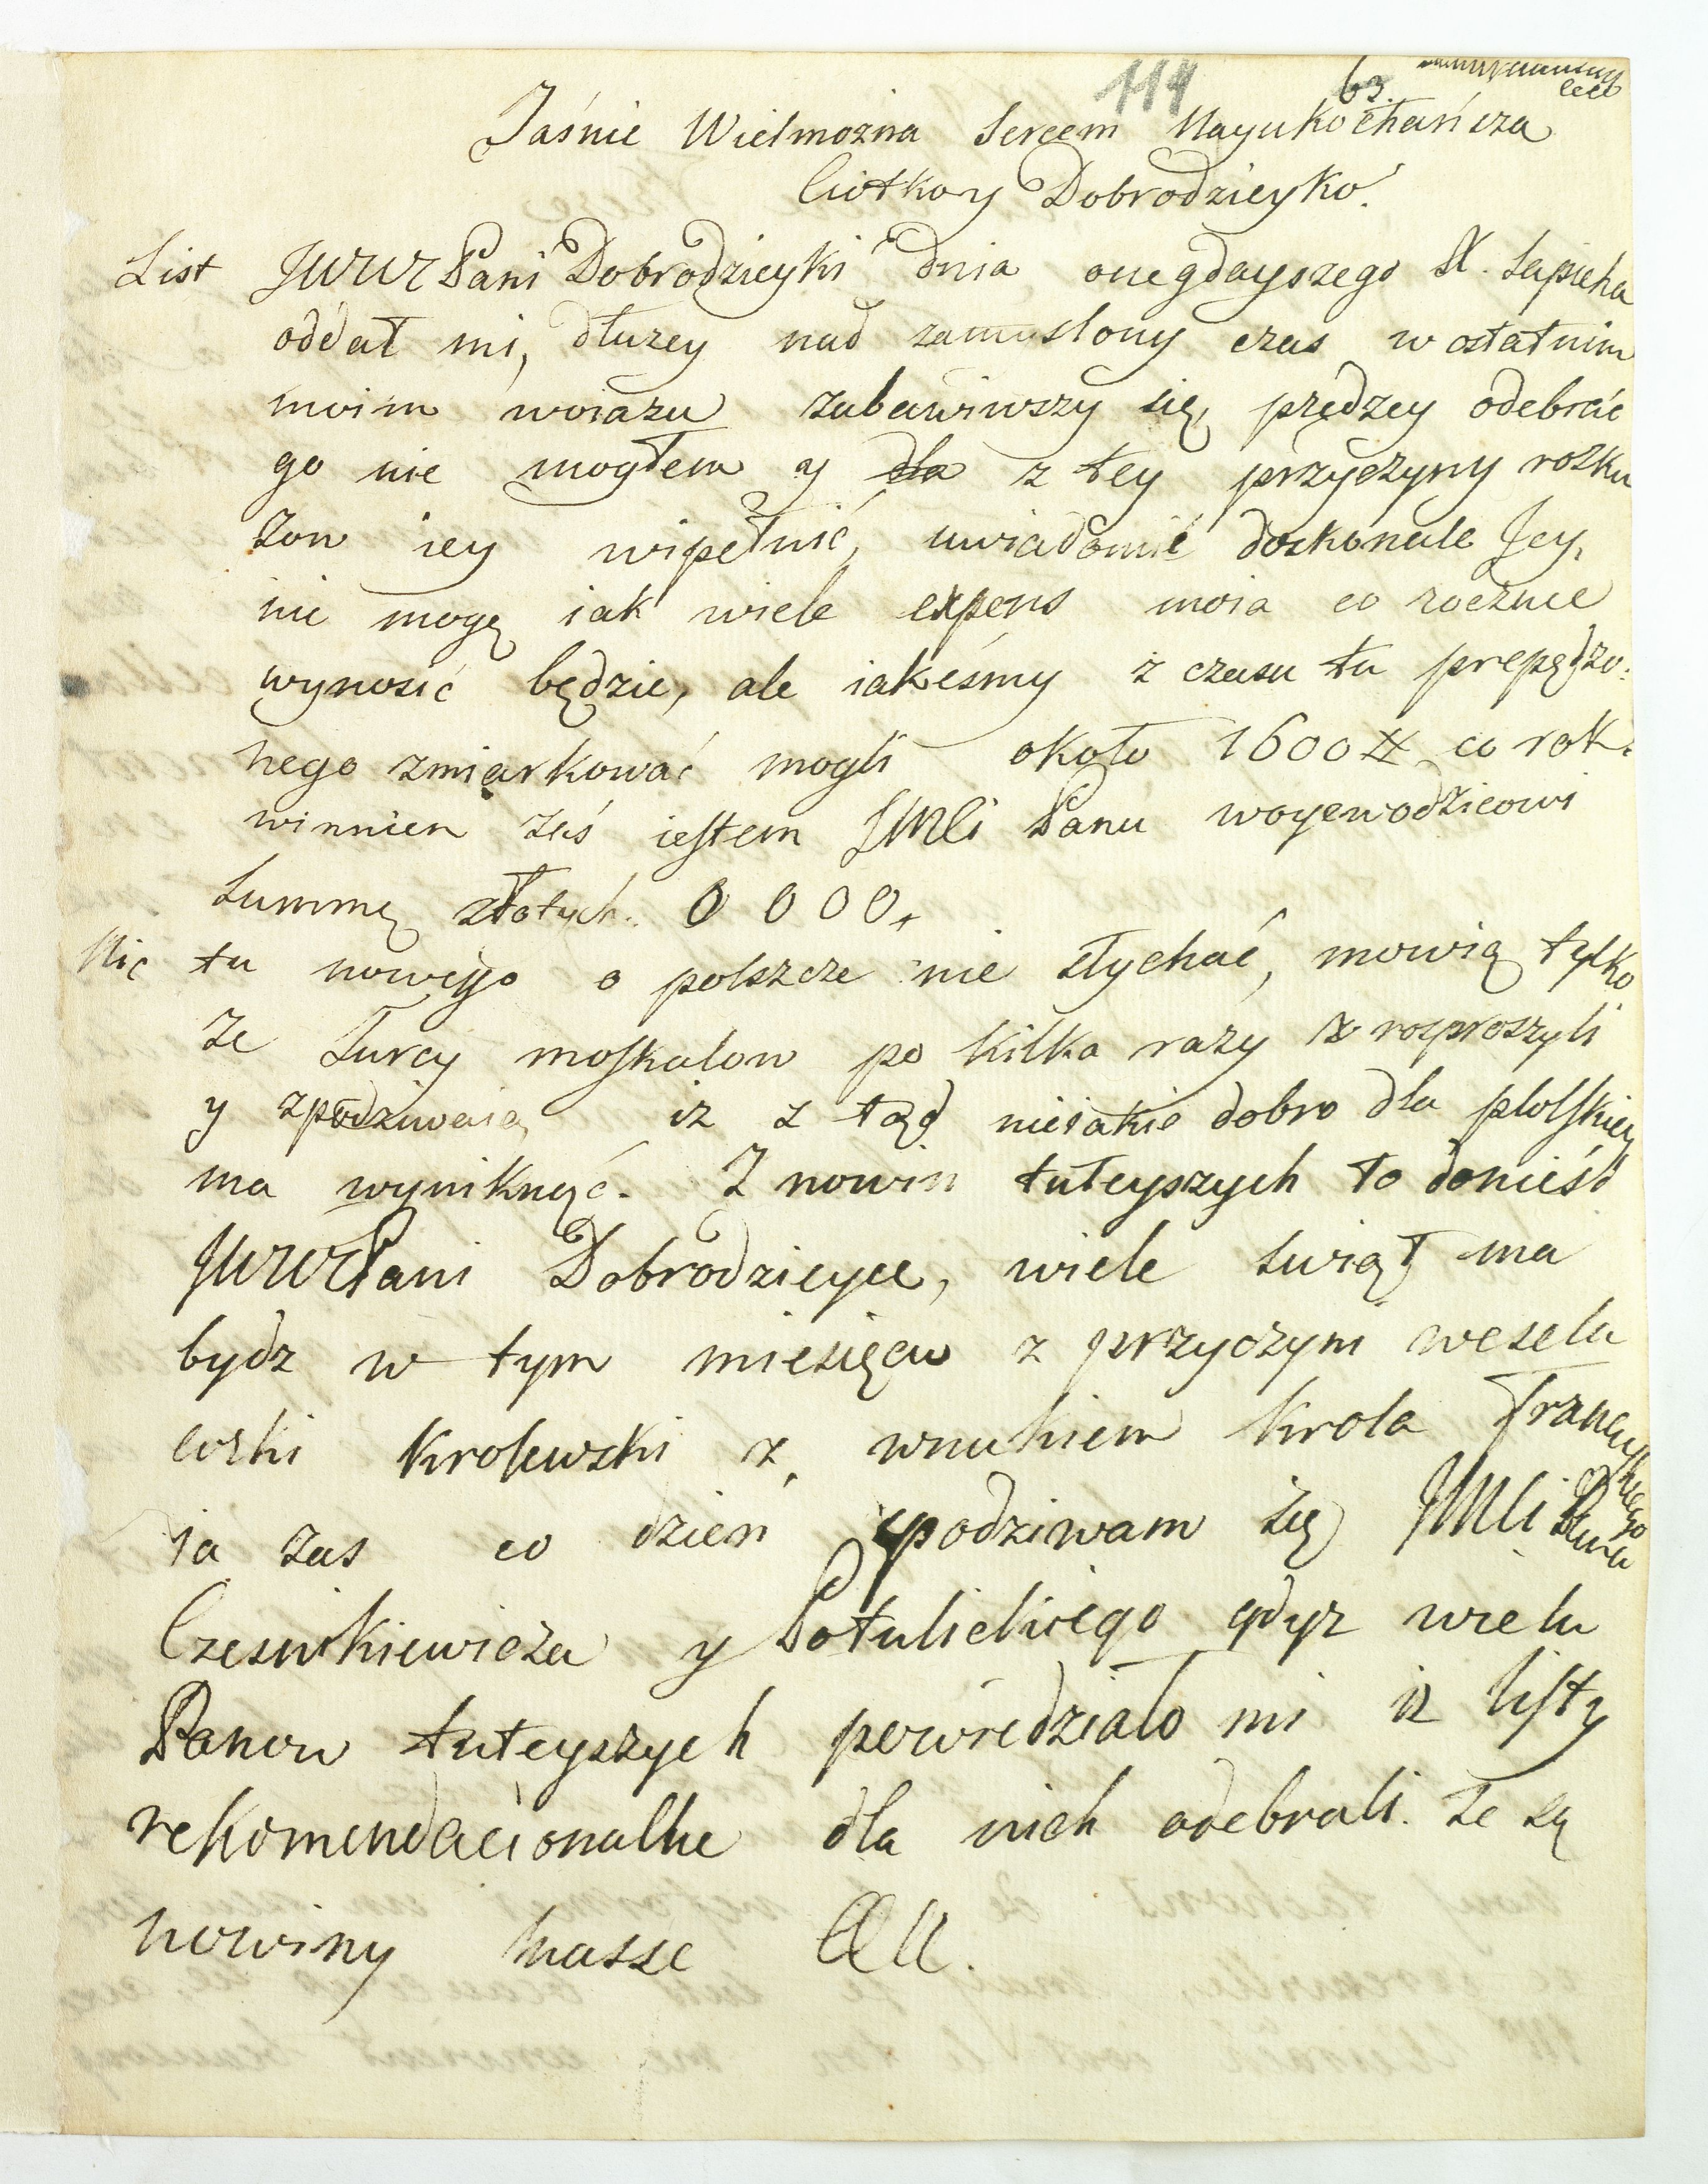 114 63.
Jaśnie Wielmożna Sercem Nayukochańcza
Ciotko y Dobrodzieyko!
List JWWPani Dobrodzieyki dnia onegdayszego X. Sapieha
oddał mi, dłuzey nad zamyslony czas w ostatnim
moim woiazu zabawiwszy się, prędzey odebrać
go nie mogłem y dla z tey przyczyny rozka
zow iey wipełnić, uwiadomić doskonale Jey,
nie mogę iak wiele expens moia co rocznie
wynosić będzie, ale iakeśmy z czasu tu prepędzo:
nego zmiarkować mogli około 1600 # co rok.
winnien zaś iestem JMCi Panu woyewodzicowi
Summę złotych. 0 0 0 0.
Nic tu nowego o polszcze nie słychać, mowią tylko
że Turcy moskalow po kilka razy rozproszyli
y zpodziwaią iz z tąd nieiakie dobro dla plolskiey
ma wyniknąć. Z nowin tuteyszych to donieść
JWWPani Dobrodzieyce, wiele swiąt ma
bydz w tym miesięcu z przyczyni wesela
corki Krolewski z wnukiem Krola Francuskiego
ia zas co dzień spodziwam się JMCi Pana
Czesnikiewicza y Potulickiego gdyz wielu
Panow tuteyszych powiedziało mi iz listy
rekomendacionalne dla nich odebrali. te są
nowiny nasze